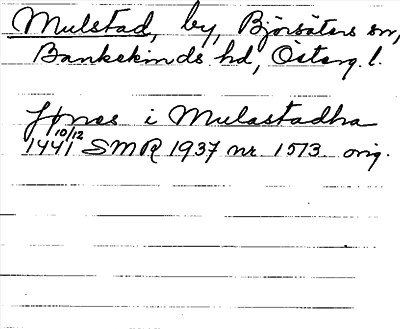 Mulstad, by, Björsäters sn,
Bankekinds hd, Österg. l.
Jønes i Mulastadha
10/12
1441 SMR 1937 nr 1573 orig.